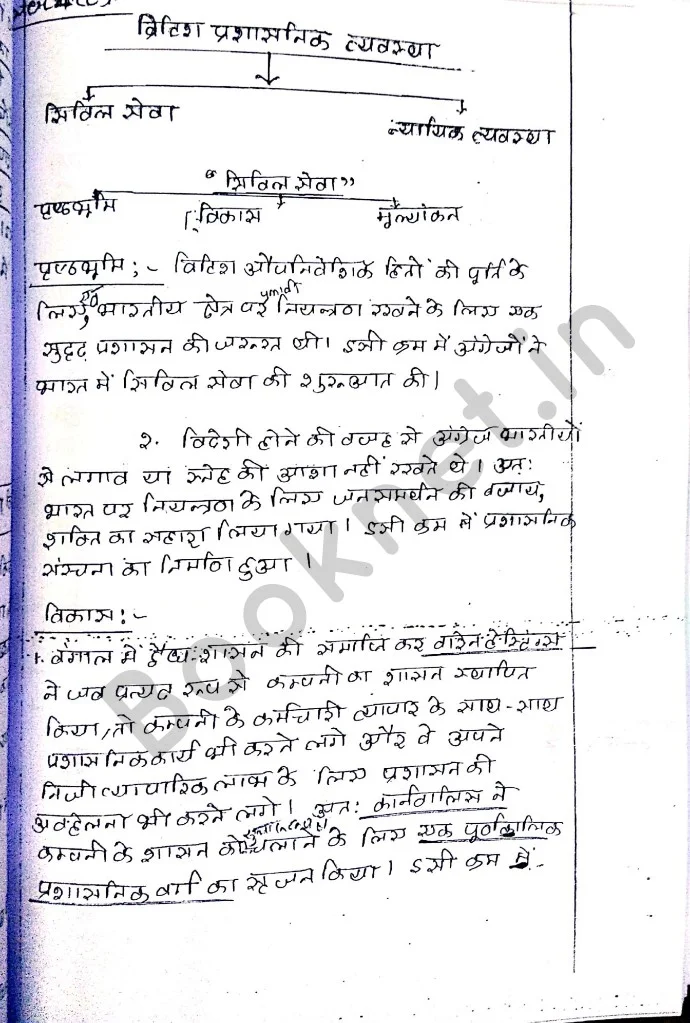 ब्रिटिश प्रशासनिक व्यवस्था
सिविल सेवा
न्यायिक व्यवस्था
"सिविल सेवा"
पृष्ठभूमि विकास मूल्यांकन
पृष्ठभूमि:- ब्रिटिश औपनिवेशिक हितों की पूर्ति के
लिए एवं भारतीय क्षेत्र पर नियन्त्रण रखने के लिए एक
सुदृढ़ प्रशासन की जरूरत थी। इसी क्रम में अंग्रेजों ने
भारत में सिविल सेवा की शुरूआत की।
२. विदेशी होने की वजह से अंग्रेज भारतीयों
से लगाव या स्नेह की आशा नहीं रखते थे। अतः
भारत पर नियन्त्रण के लिए जनसमर्थन की बजाय,
शक्ति का सहारा लिया गया। इसी क्रम में प्रशासनिक
संरचना का निर्माण हुआ।
विकास:-
1. बंगाल में द्वैध-शासन की समाप्ति कर वारेन हेस्टिंग्स
ने जब प्रत्यक्ष रूप से कम्पनी का शासन स्थापित
किया, तो कम्पनी के कर्मचारी व्यापार के साथ-साथ
प्रशासनिक कार्य भी करने लगे और वे अपने
निजी व्यापारिक लाभ के लिए प्रशासन की
अवहेलना भी करने लगे। अतः कार्नवालिस ने
कम्पनी के शासन को चलाने के लिए एक पूर्वकालिक
प्रशासनिक वर्ग का सृजन किया। इसी क्रम में
Booknet.in